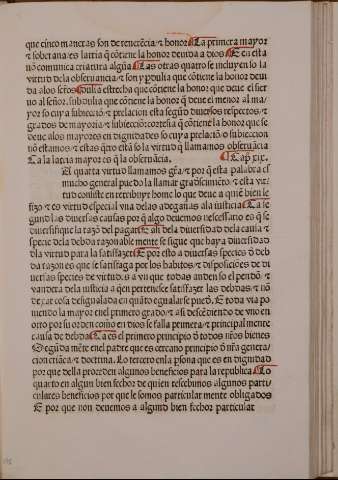 que cinco maneras son de reuerẽcia ⁊ honor La primera mayor
⁊ soberana es latria q̃ cõtiene la honor deuida a dios E en esta
nõ comunica criatura algũa Las otras quatro se incluyen so la
virtud dela obseruancia ⁊ son
dulia q̃ cõtiene la honor deui
da alos sẽores Dulia estrecha que contiene la honor que deue el sier
uo al señor. subdulia que cõtiene la honor q̃ deue el menor al ma/
yor so cuya subiection ⁊ prelacion esta segũd diuersos respectos/ ⁊
grados de mayoria ⁊ subiection cortesia q̃ cõtiene la honor que se
deue alos mayores en dignidad so cuya prelaciõ o subieccion
nõ estamos/ ⁊ estas q̃tro estã so la virtud q̃ llamamos obseruãcia
E a la latria mayor es q̃ la obseruãcia. Cap. xix.
A quarta virtud llamamos gr̃a/ ⁊ por q̃ esta palabra es
mucho general puedo la llamar gradescimiẽto/ ⁊ esta vir/
tud consiste en retribuyr el home lo que deue a quiẽ bien le
fizo ⁊ es virtud especial vna delas allegadas ala iusticia Ca se
gund las diuersas causas por q̃ algo deuemos necessario es q̃ se
diuersifique la razõ del pagar E asi dela diuersidad dela causa ⁊
specie dela debda razonable mente se sigue que haya diuersidad
dla virtud para la satisfazer E por esto a diuersas species d̃ deb
da razon es que se satisfaga por los habitos/ ⁊ disposiciões de di
uersas species de virtudes.
todas anden so el pendõ/ ⁊
vandera dela iusticia a quien pertenesce satisfazer las debdas/ ⁊ nõ
dexar cosa desigualada en quãto egualar se puedẽ. E toda via po
niendo la mayor enel primero grado/ ⁊ asi descẽdiendo de vno en
otro por su orden como en dios se falla primera/ ⁊ principal mente
causa de debda Ca es el primero principio d̃ todos nr̃os bienes
Segũda mẽte enel padre que es cercano principio d̃ nr̃a genera/
cion criãça/ ⁊ doctrina. Lo tercero enla p̃sona que es en dignidad
por que della proceden algunos beneficios para la republica Lo
quarto en algun bien fechor de quien rescebimos algunos parti/
culares beneficios por que le somos particular mente obligados
E por que non deuemos a algund bien fechor particular